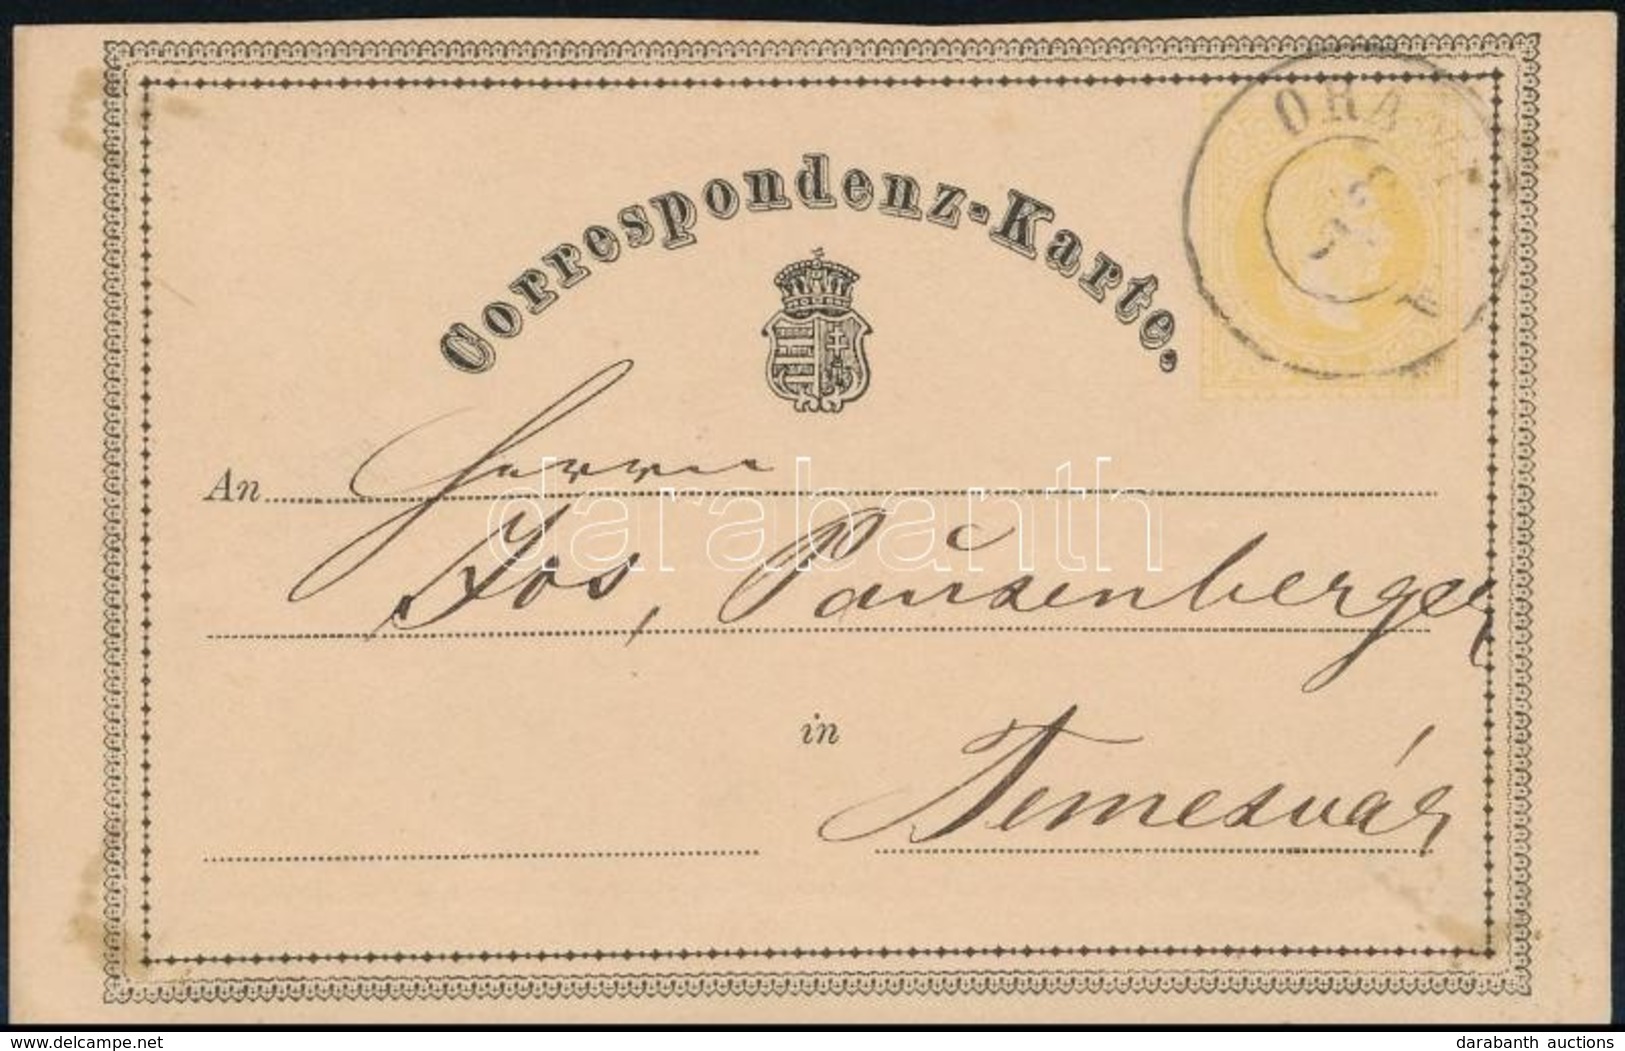 Correspondenz-Karte.
An Herrn
Jos, Pausenberger
in Temesvár
darabanth
delcampe.net
darabanth auctions